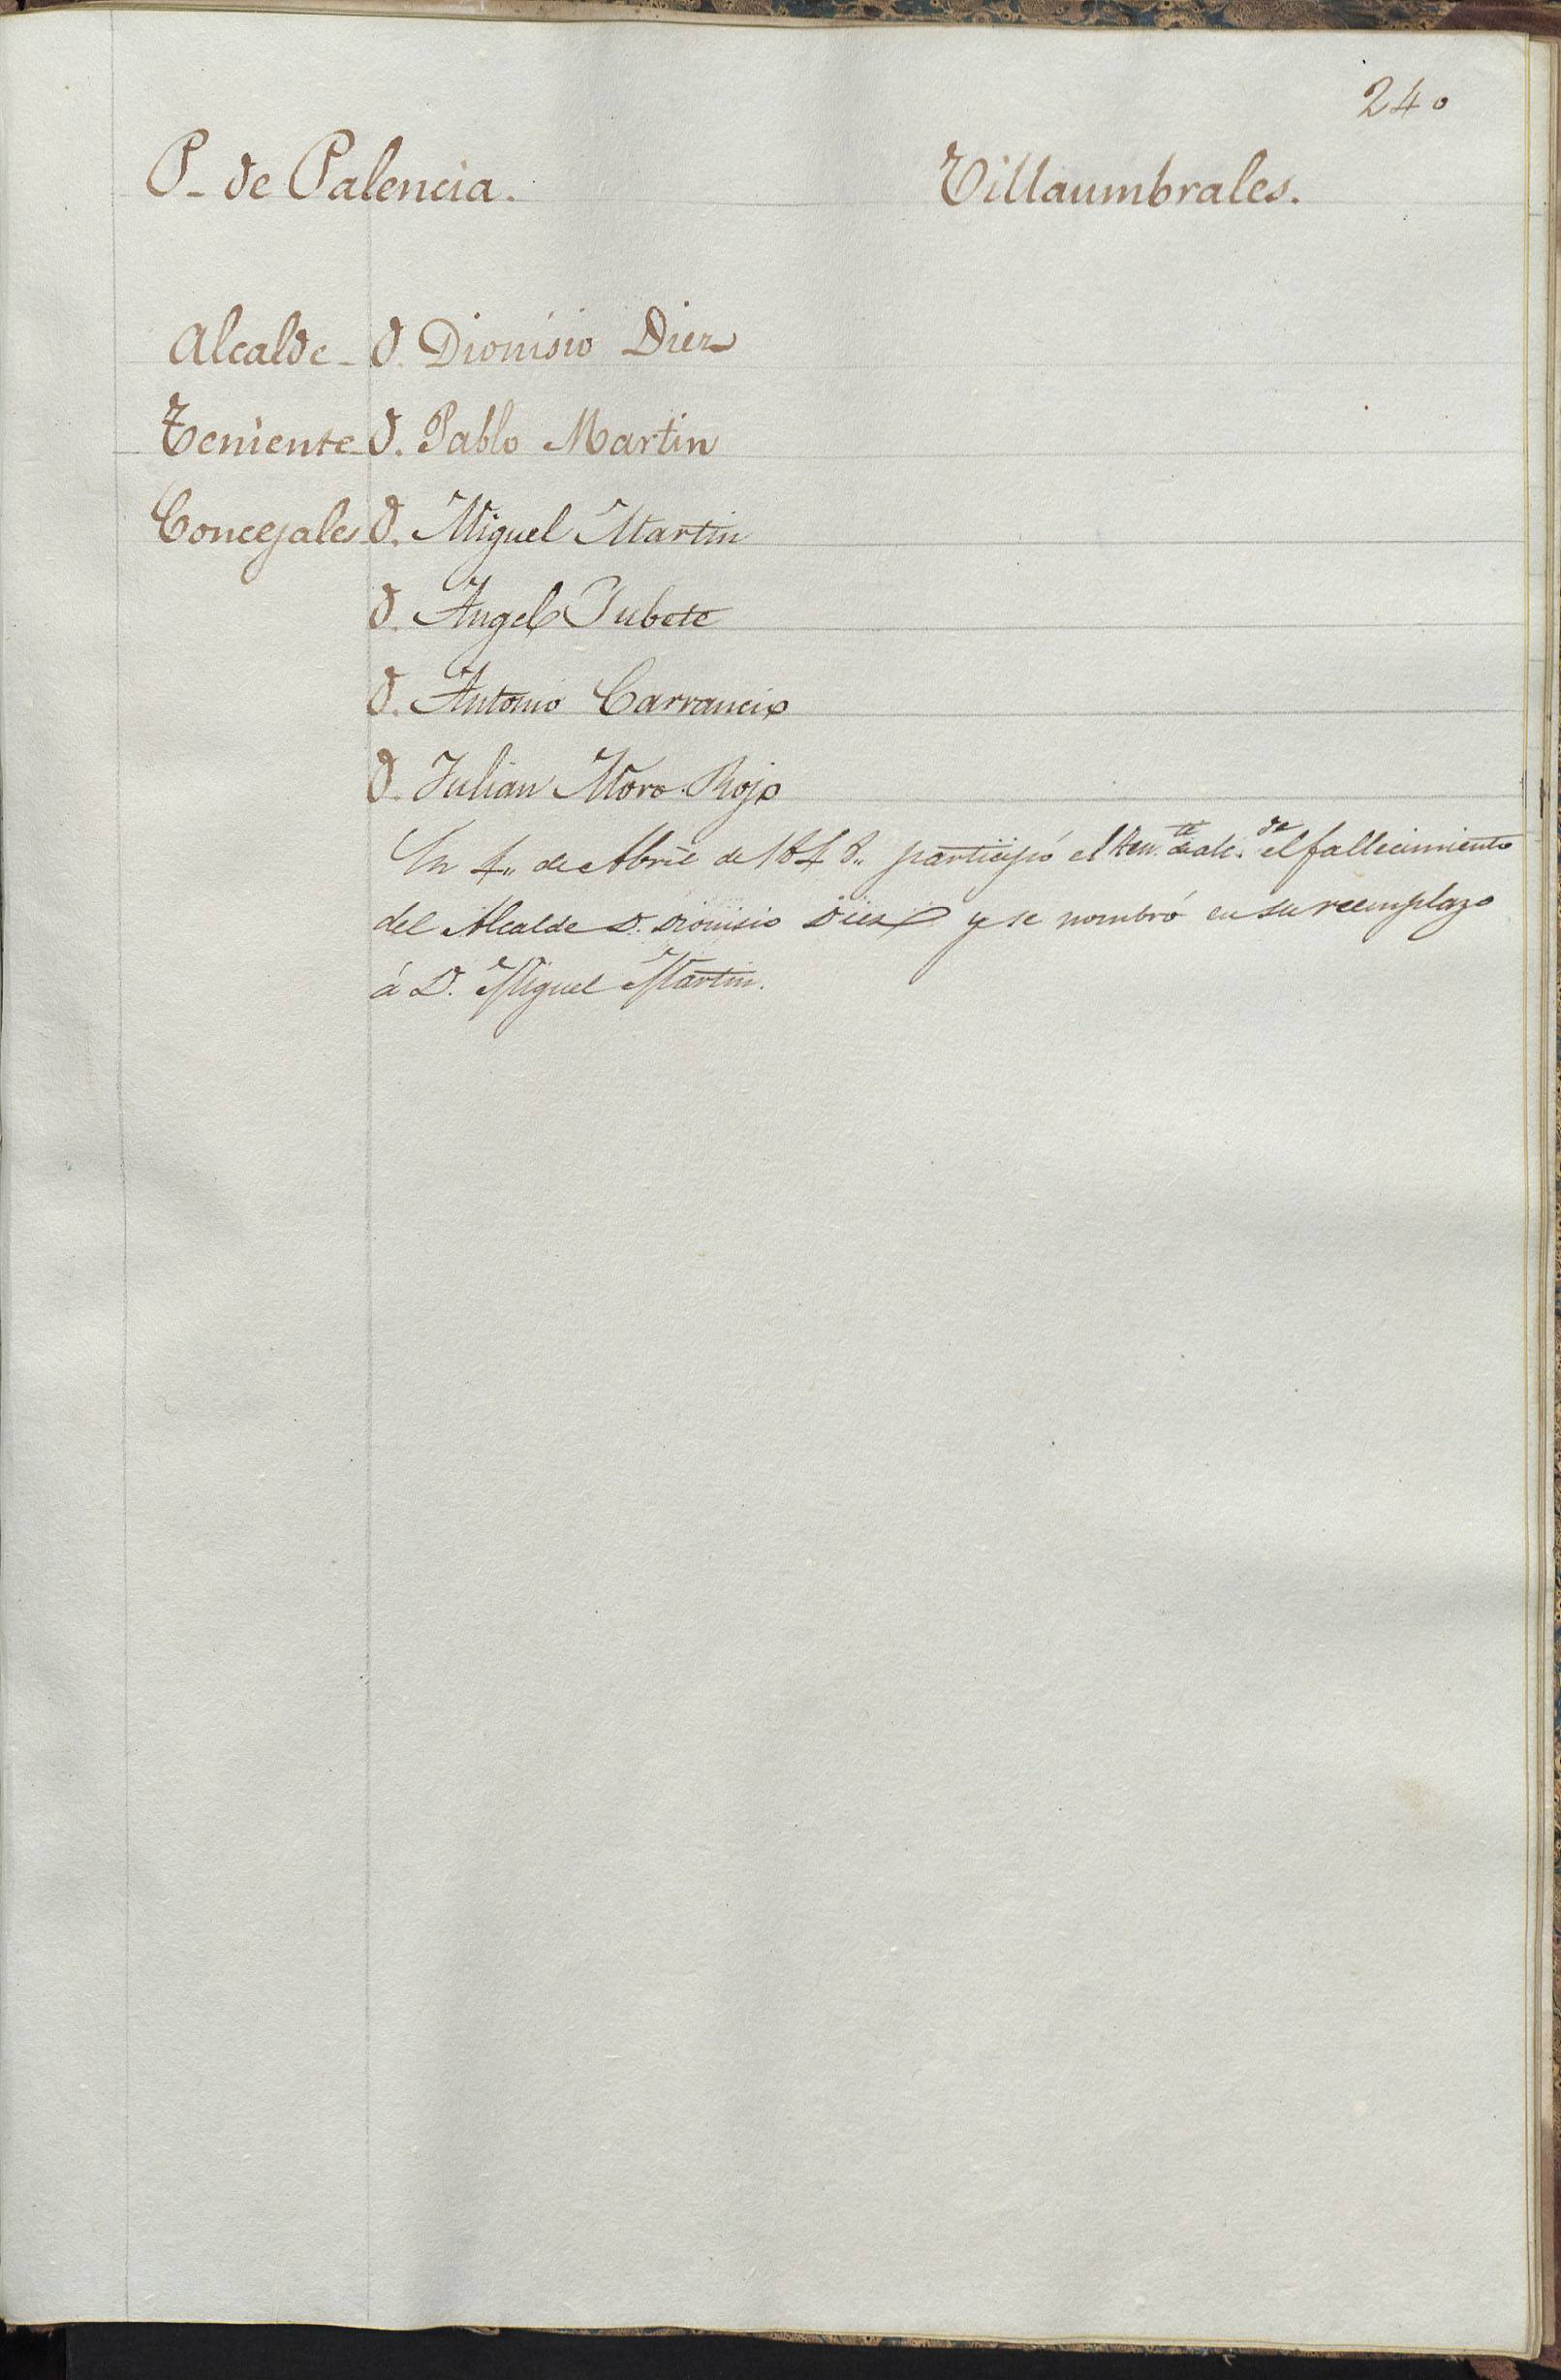 240
P- de Palencia. Villaumbrales.
Alcalde- D. Dionisio Diez
Teniente D. Pablo Martin
Concejales D. Miguel Martin
D. Angel Jubete
D. Antonio Carrancio
D. Julian Moro Rojo
En 4,, de Abril de 1848,, participó el Ten.te de alc.de el fallecimiento
del Alcalde D. Dionisio Diez y se nombró en su reemplazo
á D. Miguel Martin.